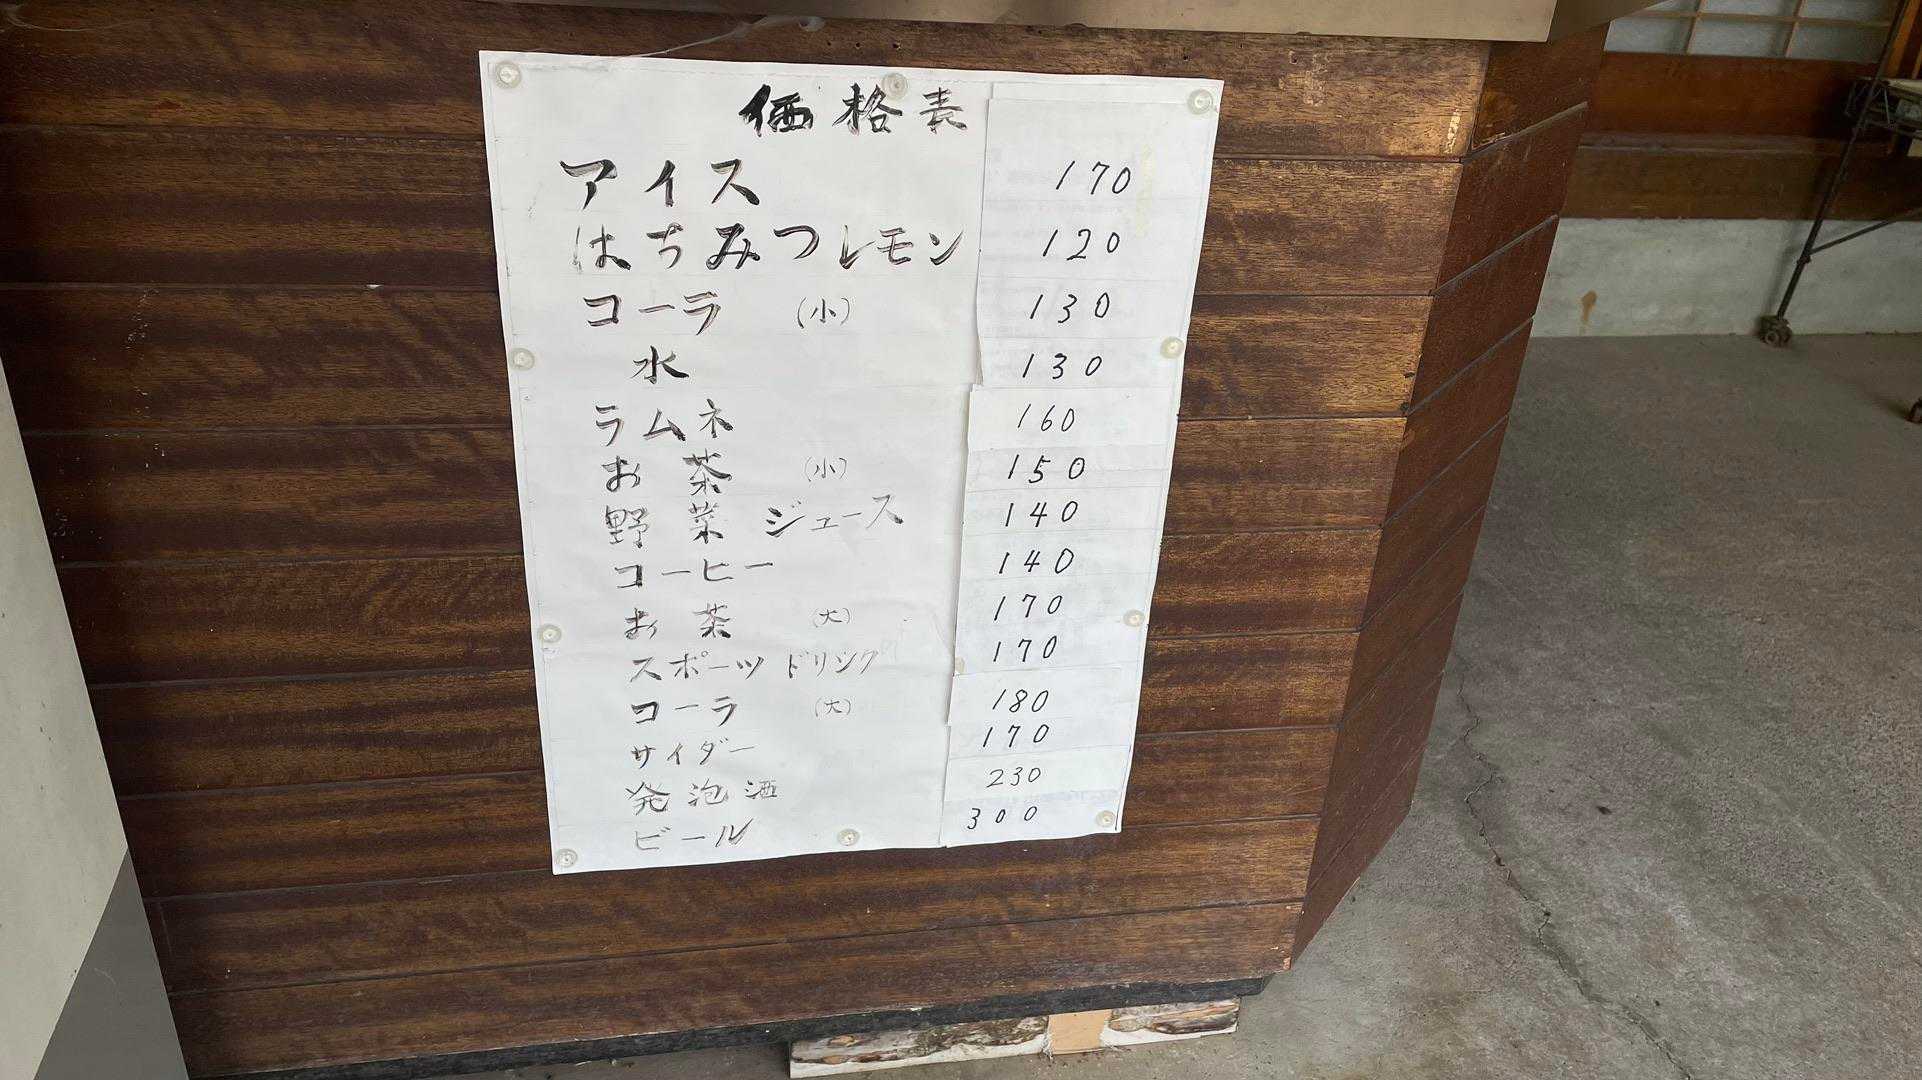 価格表
アイス 170
はちみつレモン 120
コーラ (小) 130
水 130
ラムネ 160
お茶 (小) 150
野菜ジュース 140
コーヒー 140
お茶 (大) 170
スポーツドリンク 170
コーラ (大) 180
サイダー 170
発泡酒 230
ビール 300